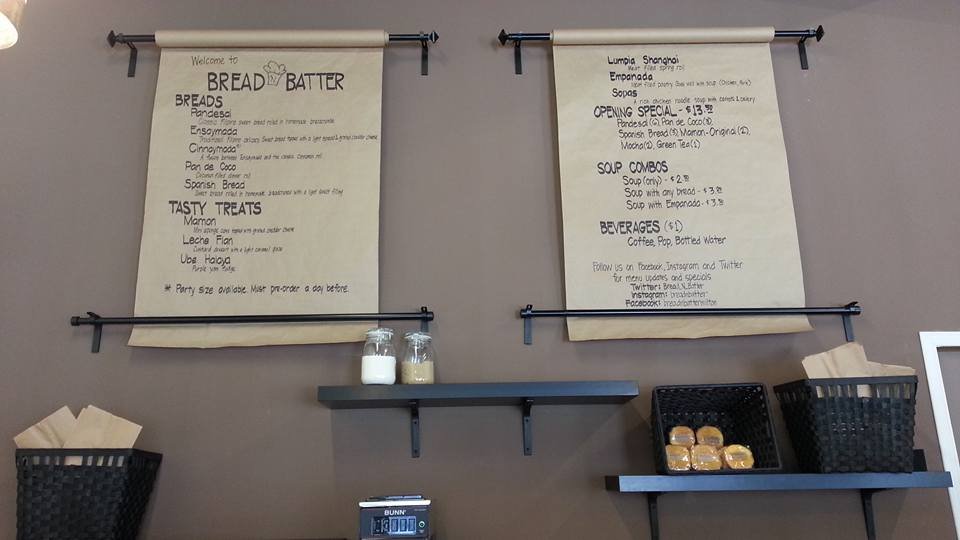 Welcome to
BREAD N' BATTER
BREADS
Pandesal
Classic Filipino sweet bread rolled in homemade breadcrumbs
Ensaymada
Traditional Filipino delicacy. Sweet bread topped with a light spread & grated cheddar cheese
Cinnaymada
A fusion between Ensaymada and the classic cinnamon roll
Pan de Coco
Coconut filled dinner roll
Spanish Bread
Sweet bread rolled in homemade breadcrumbs with a light sweet filling
TASTY TREATS
Mamon
Mini sponge cake topped with grated cheddar cheese
Leche Flan
Custard dessert with a light caramel glaze
Ube Halaya
Purple yam fudge
* Party size available. Must pre-order a day before.
Lumpia Shanghai
Meat filled spring roll
Empanada
Meat filled pastry. Goes well with soup (Chicken, Pork)
Sopas
A rich chicken noodle soup with carrots & celery
OPENING SPECIAL - $13.50
Pandesal (6), Pan de Coco (3),
Spanish Bread (3), Mamon - Original (2),
Mocha (2), Green Tea (1)
SOUP COMBOS
Soup (only) - $2.50
Soup with any bread - $3.25
Soup with Empanada - $3.50
BEVERAGES ($1)
Coffee, Pop, Bottled Water
Follow us on Facebook, Instagram and Twitter
for menu updates and specials
Twitter: Bread_N_Batter
Instagram: breadnbatter
Facebook: breadnbattermilton
BUNN